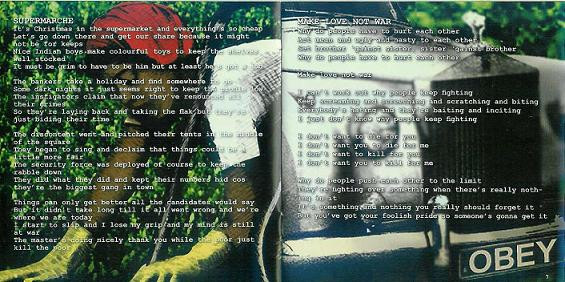 SUPERMARCHE
It's Christmas in the supermarket and everything's so cheap
Let's go down there and get our share because it might
not be for keeps
Nice Indian boys make colourful toys to keep the shelves
well stocked
It must be grim to have to be him but at least he's got a job
The bankers take a holiday and find somewhere to go
Some dark nights at just seems right to keep the profile low
The instigators claim that now they've renounced all
their crimes
So they're laying back and taking the flak but they're
just biding their time
The discontent went and pitched their tents in the middle
of the square
They began to sing and declaim that things could be a
little more fair
The security force was deployed of course to keep the
rabble down
They did what they did and kept their numbers hid cos
they're the biggest gang in town
Things can only get better all the candidates would say
But it didn't take long till it all went wrong and we're
where we are today
I start to slip and I lose my grip and my mind is still
at war
The master's doing nicely thank you while the poor just
kill the poor
MAKE LOVE NOT WAR
Why do people have to hurt each other
Get mean and ugly and nasty to each other
Set brother 'gainst sister, sister 'gainst brother
Why do people have to hurt each other
Make love not war
I can't work out why people keep fighting
Keep screaming and screeching and scratching and biting
Everybody's hating and they're baiting and inciting
I just don't know why people keep fighting
I don't want to die for you
I don't want you to die for me
I don't want to kill for you
I don't want you to kill for me
Why do people push each other to the limit
They're fighting over something when there's really noth-
ing in it
It's something and nothing you really should forget it
But you've got your foolish pride so someone's gonna get it
OBEY